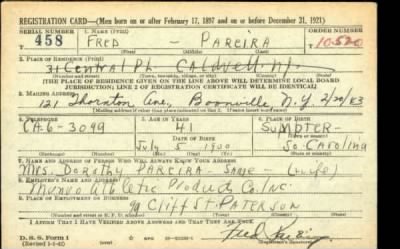 REGISTRATION CARD—(Men born on or after February 17, 1897 and on or before December 31, 1921)
SERIAL NUMBER 1. NAME (Print) ORDER NUMBER
458 FRED - PAREIRA 10520
(First) (Middle) (Last)
2. PLACE OF RESIDENCE (Print)
31 Central Pl. CALDWELL N.J.
(Number and street) (Town, township, village, or city) (County) (State)
[THE PLACE OF RESIDENCE GIVEN ON THE LINE ABOVE WILL DETERMINE LOCAL BOARD
JURISDICTION; LINE 2 OF REGISTRATION CERTIFICATE WILL BE IDENTICAL]
3. MAILING ADDRESS
121 Thornton Ave, Boonville N.Y.
4. TELEPHONE 5. AGE IN YEARS 6. PLACE OF BIRTH
CA-6-3099 41 SUMPTER-
DATE OF BIRTH
July 5 1900 So. Carolina
7. NAME AND ADDRESS OF PERSON WHO WILL ALWAYS KNOW YOUR ADDRESS
MRS. Dorothy PAREIRA - SAME - (wife)
8. EMPLOYER'S NAME AND ADDRESS
Munro Athletic Products Co. Inc.
9. PLACE OF EMPLOYMENT OR BUSINESS
Cliff St. PATERSON
I AFFIRM THAT I HAVE VERIFIED ABOVE ANSWERS AND THAT THEY ARE TRUE.
D. S. S. Form 1
(Revised 1-1-42)
(Registrant's signature)